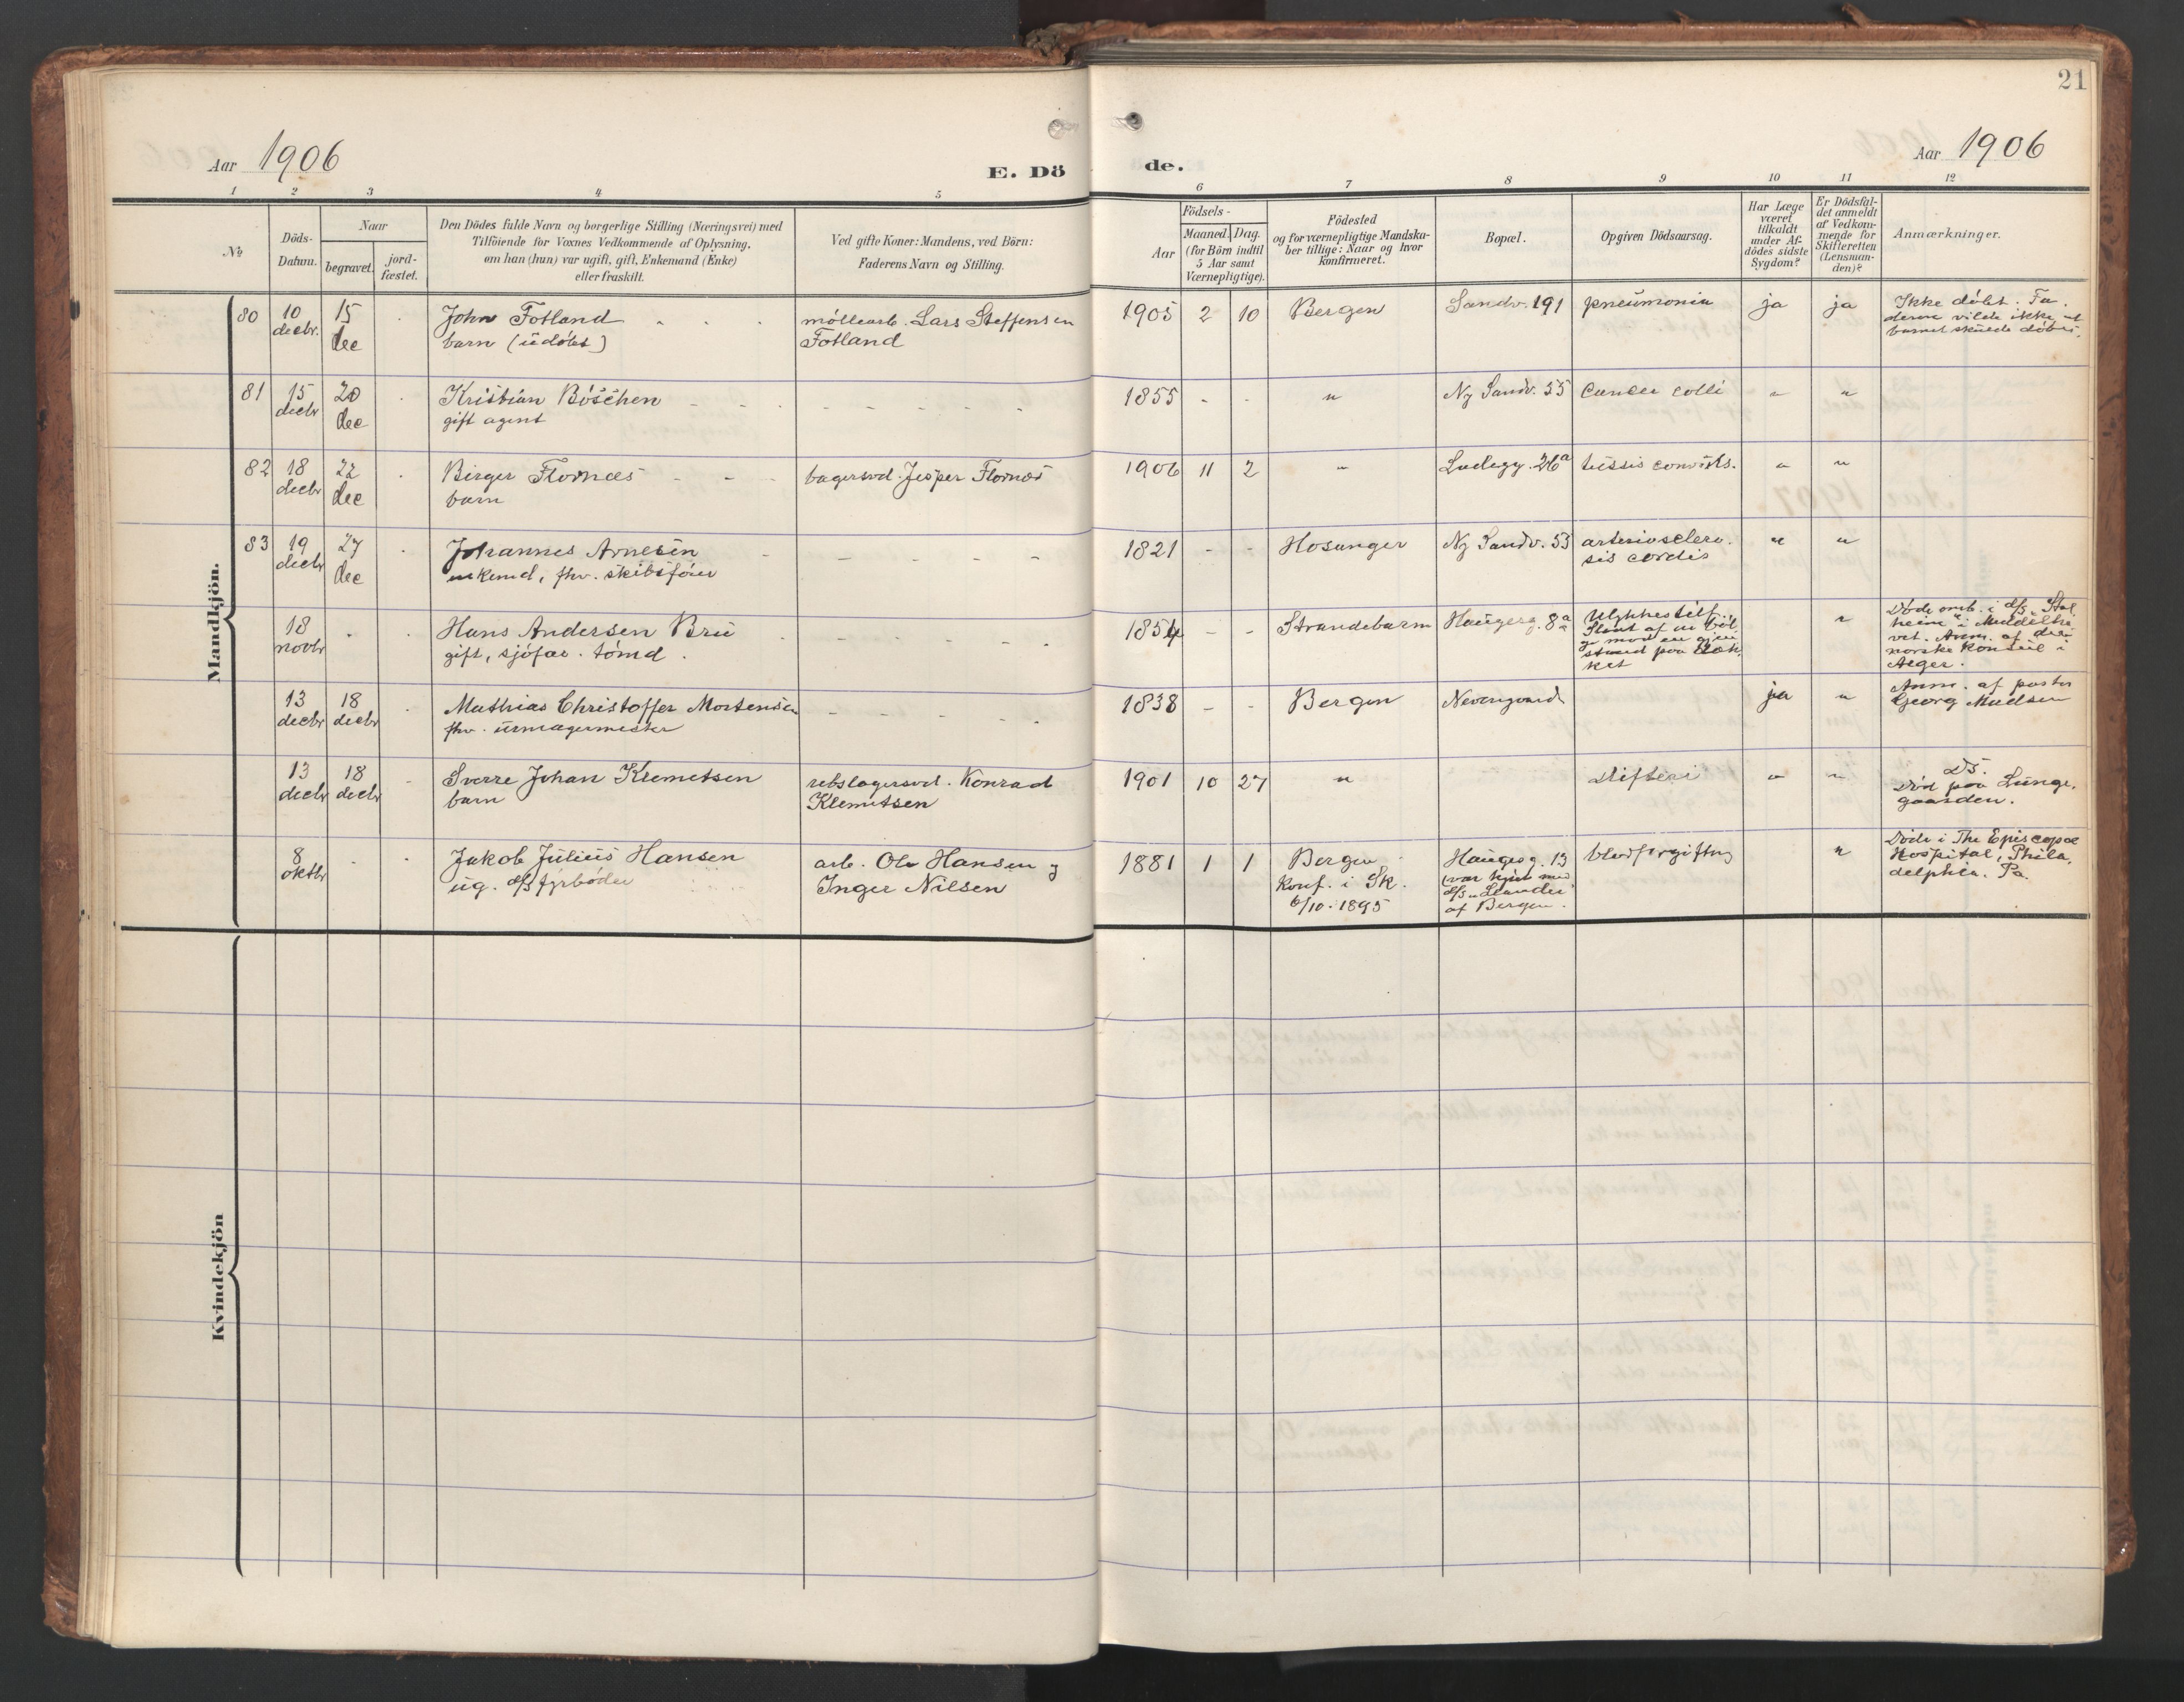 21
Aar 1906
E. Dö
de.
Aar 1906
1 2 3 4 5 6 7 8 9 10 11 12
No
Döds-
Datum.
Naar
begravet.
jord-
fæstet.
Den Dödes fulde Navn og borgerlige Stilling (Næringsvei) med
Tilföiende for Voxnes Vedkommende af Oplysning,
om han (hun) var ugift, gift, Enkemand (Enke)
eller fraskilt.
Ved gifte Koner: Mandens, ved Börn:
Faderens Navn og Stilling.
Födsels-
Aar
Maaned. Dag.
(for Börn indtil
5 Aar samt
Værnepligtige).
Födested
og for værnepligtige Mandska-
ber tillige: Naar og hvor
konfirmeret.
Bopæl.
Opgiven Dödsaarsag.
Har Læge
været
tilkaldt
under Af-
dödes sidste
Sygdom?
Er Dödsfal-
det anmeldt
af Vedkom-
mende for
Skifteretten
(Lensman-
den)?
Anmærkninger.
Mandkjön.
80
10
decbr.
15
dec
John Fotland
barn (udöbt)
möllearb. Lars Steffensen
Fotland
1905 2 10
Bergen
Sandv. 191
pneumonia
ja
ja
Ikke döbt. Fa-
deren vilde ikke at
barnet skulde döbes.
81
15
decbr
20
dec
Kristian Böschen
gift agent
1855 - -
"
Ny Sandv. 55
Cancer colli
"
"
82
18
decbr
22
dec
Birger Flornæs
barn
bagersvd. Jesper Flornæs
1906 11 2
"
Ladegg. 26a
tussis convuls.
"
"
83
19
decbr
27
dec
Johannes Arnesen
enkemd, fhv. skibsförer
1821 - -
Hosanger
Ny Sandv. 53
arteriosclero-
sis cordis
"
"
18
novbr
Hans Andersen Bru
gift, sjöfar. tömd.
1854 - -
Strandebarm
Haugesg. 8a
Ulykkestilf.
Slaat af en böl-
ge mod en gjen-
stand paa dæk-
ket
"
Döde omb. i d/s "Stal-
heim" i Middelha-
vet. Anm. af den
norske Konsul i
Alger.
13
decbr
18
decbr
Mathias Christoffer Mortensen
fhv. urmagermester
1838 - -
Bergen
Nevengaard
ja
"
Anm. af pastor
Georg Madsen
13
decbr
18
decbr
Sverre Johan Klemetsen
barn
rebslagersvd. Konrad
Klemetsen
1901 10 27
"
Difteri
"
"
D5.
Död paa Lunge-
gaarden.
8
oktbr
Jakob Julius Hansen
ug. d/s fyrböder
arb. Ole Hansen og
Inger Nilsen
1881 1 1
Bergen
Konf. i Sk.
6/10 1895
Haugesg. 13
(var hjem med
d/s "Leander"
af Bergen.
blodforgiftng
"
Döde i The Episcopal
Hospital, Phila-
delphia. Pa.
Kvindekjön